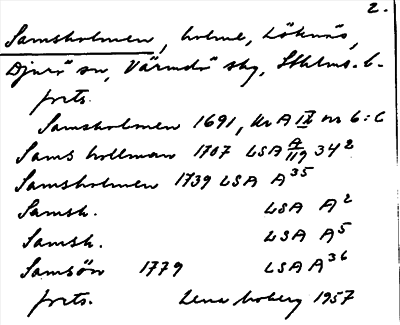 2.
Samsholmen, holme, Löknäs,
Djurö sn, Värmdö skg, Sthlms. l.
forts.
Samsholmen 1691, Kr A IX nr 6:C
Sams hollman 1707 LSA A/119 34²
Samsholmen 1739 LSA A³⁵
Samsh. LSA A²
Samsh. LSA A⁵
Samsön 1779 LSA A³⁶
forts. Lena Moberg 1957